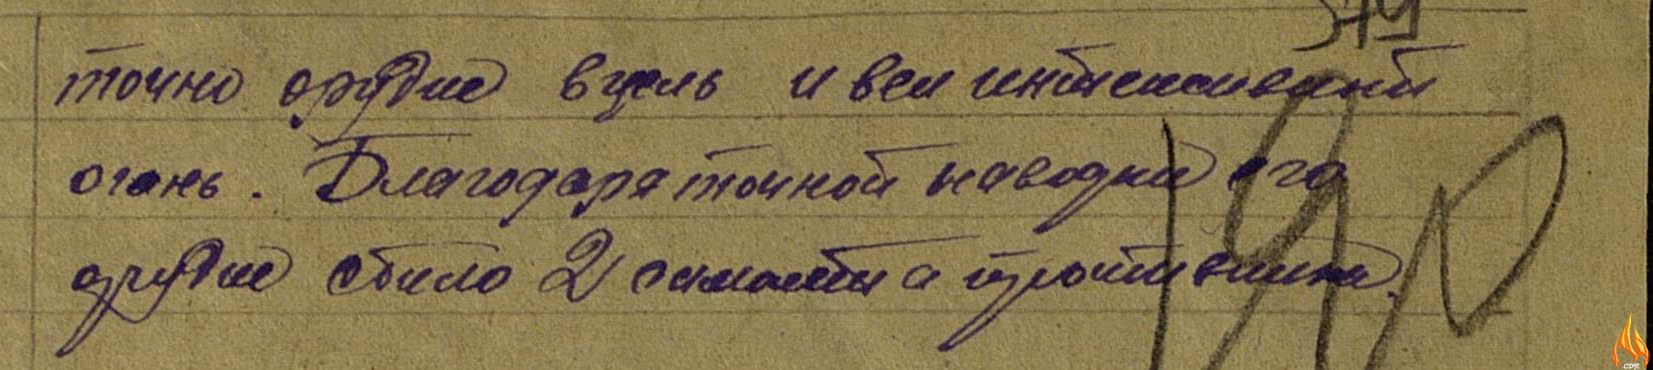 379
точно орудие в цель и вел интенсивный
огонь. Благодаря точной наводки его
орудие сбило 2 самолета противника.